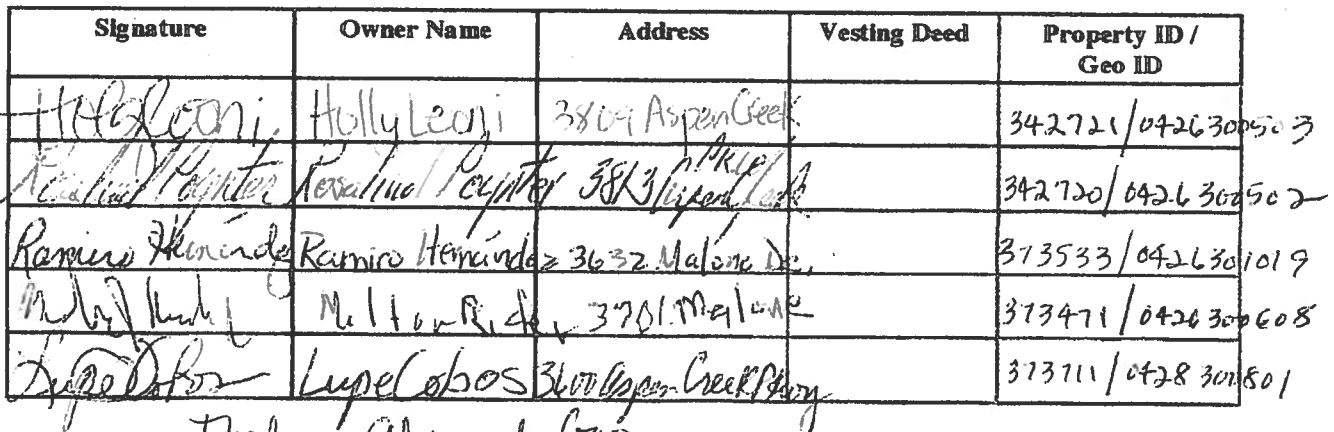 Signature Owner Name Address Vesting Deed Property ID / Geo ID
Holly Leoni 3809 Aspen Creek 342721/0426300503
Rosalind Poynter Rosalind Poynter 3813 Aspen Creek PKW 342720/0426300502
Ramiro Hernández Ramiro Hernández 3632 Malone Dr. 373533/0426301019
3701 Malone 373471/0426300608
Lupe Cobos 3600 Aspen Creek Pkwy 373711/0428300801